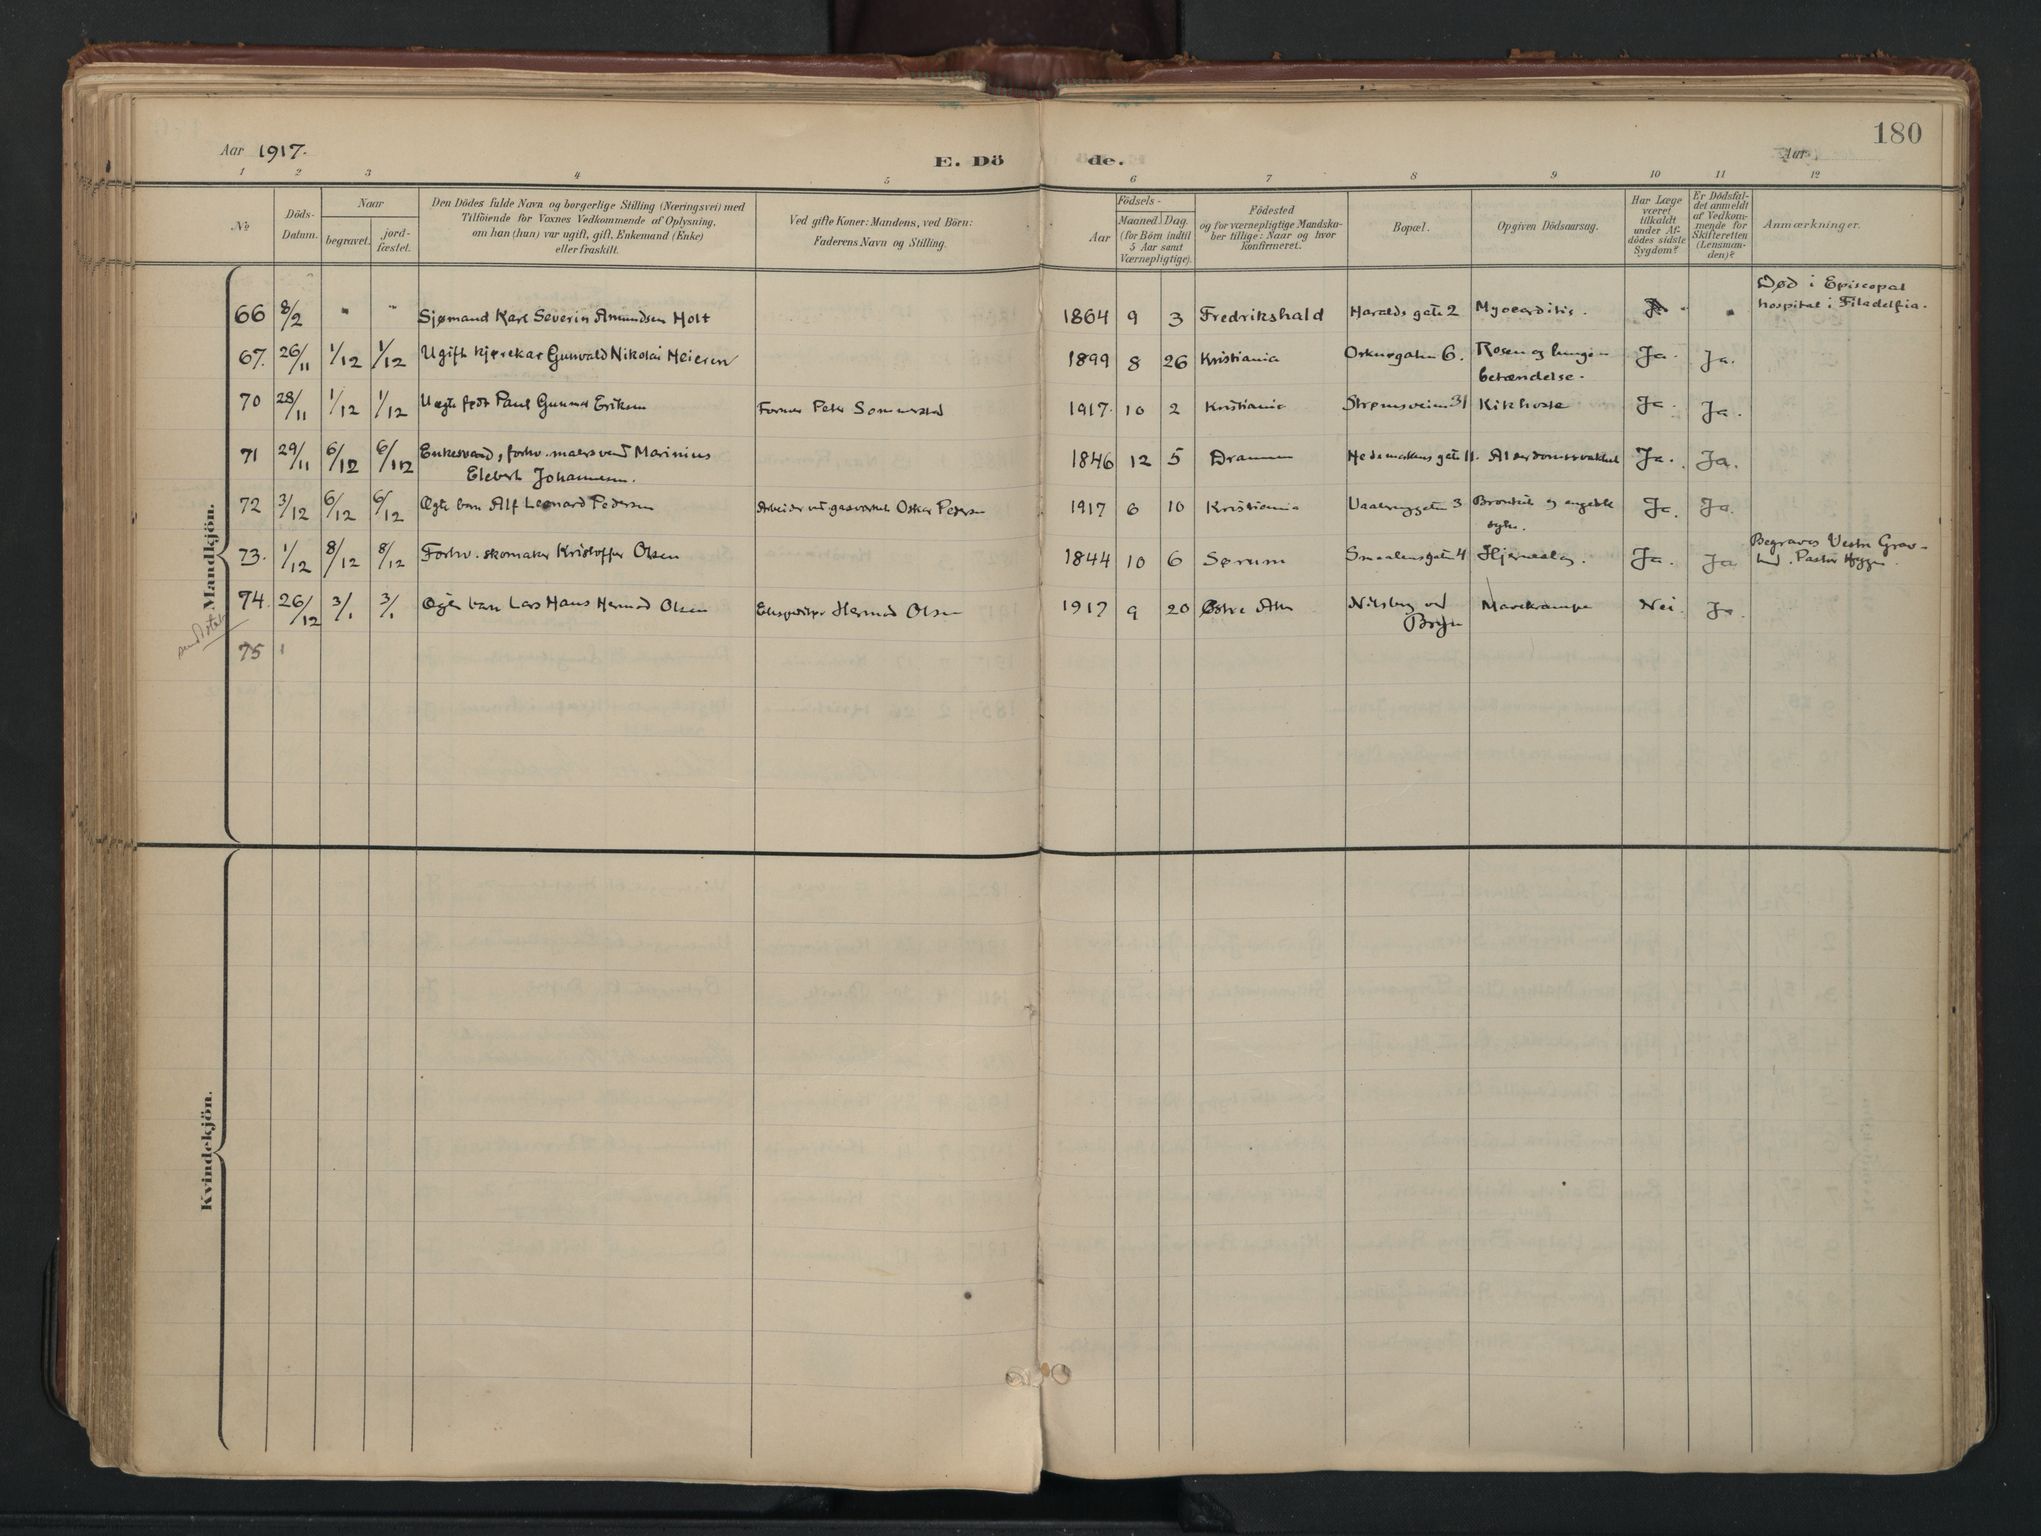 180
Aar 1917.
E. Dö de.
Aar
1 2 3 4 5 6 7 8 9 10 11 12
№
Döds-Datum.
Naar
begravet.
jord-fæstet.
Den Dödes fulde Navn og borgerlige Stilling (Næringsvei) med
Tilföiende for Voxnes Vedkommende af Oplysning,
om han (hun) var ugift, gift, Enkemand (Enke)
eller fraskilt.
Ved gifte Koner: Mandens, ved Börn:
Faderens Navn og Stilling.
Födsels-
Aar
Maaned.
Dag.
(for Börn indtil
5 Aar samt
Værnepligtige).
Födested
og for værnepligtige Mandskaber tillige: Naar og hvor
konfirmeret.
Bopæl.
Opgiven Dödsaarsag.
Har Læge
været
tilkaldt
under Afdödes sidste
Sygdom?
Er Dödsfaldet anmeldt
af Vedkommende for
Skifteretten
(Lensmanden)?
Anmærkninger.
Mandkjön.
66 8/2 " " Sjømand Karl Severin Amundsen Holt 1864 9 3 Fredrikshald Haralds gate 2 Myocarditis. Død i Episcopal
hospital i Filadelfia.
67. 26/11 1/12 1/12 Ugift kjørekar Gunvald Nikolai Heieren 1899 8 26 Kristiania 6. Rosen og lunge-
betændelse. Ja. Ja.
70 28/11 1/12 1/12 Uegte født Paul Gunnar Eriksen Peter 1917. 10 2 Kristiania Strømsveien 31 Kikhoste Ja. Ja.
71 29/11 6/12 6/12 Enkemand, forhv. malersvend Marinius
Johannesen. 1846 12 5 Drammen Hedemarkens gate 11. Alderdomssvakhet Ja. Ja.
72 3/12 6/12 6/12 Egte barn Alf Leonard Pedersen Arbeider ved gasverket Oskar Pedersen 1917 6 10 Kristiania Vaalerenggaten 3 Bronkit og engelsk
syke. Ja. Ja.
73. 1/12 8/12 8/12 Forhv. skomaker Kristoffer Olsen 1844 10 6 Sørum Smaalensgaten 4 Hjerneslag. Ja. Ja Begraves Vestre Grav-
lund. Pastor Hygen.
74. 26/12 3/1 3/1 Egte barn Lars Hans Herman Olsen Ekspeditør Herman Olsen 1917 9 20 Østre Aker ved
Bryn Mavekrampe Nei. Ja.
75
Kvindekjön.